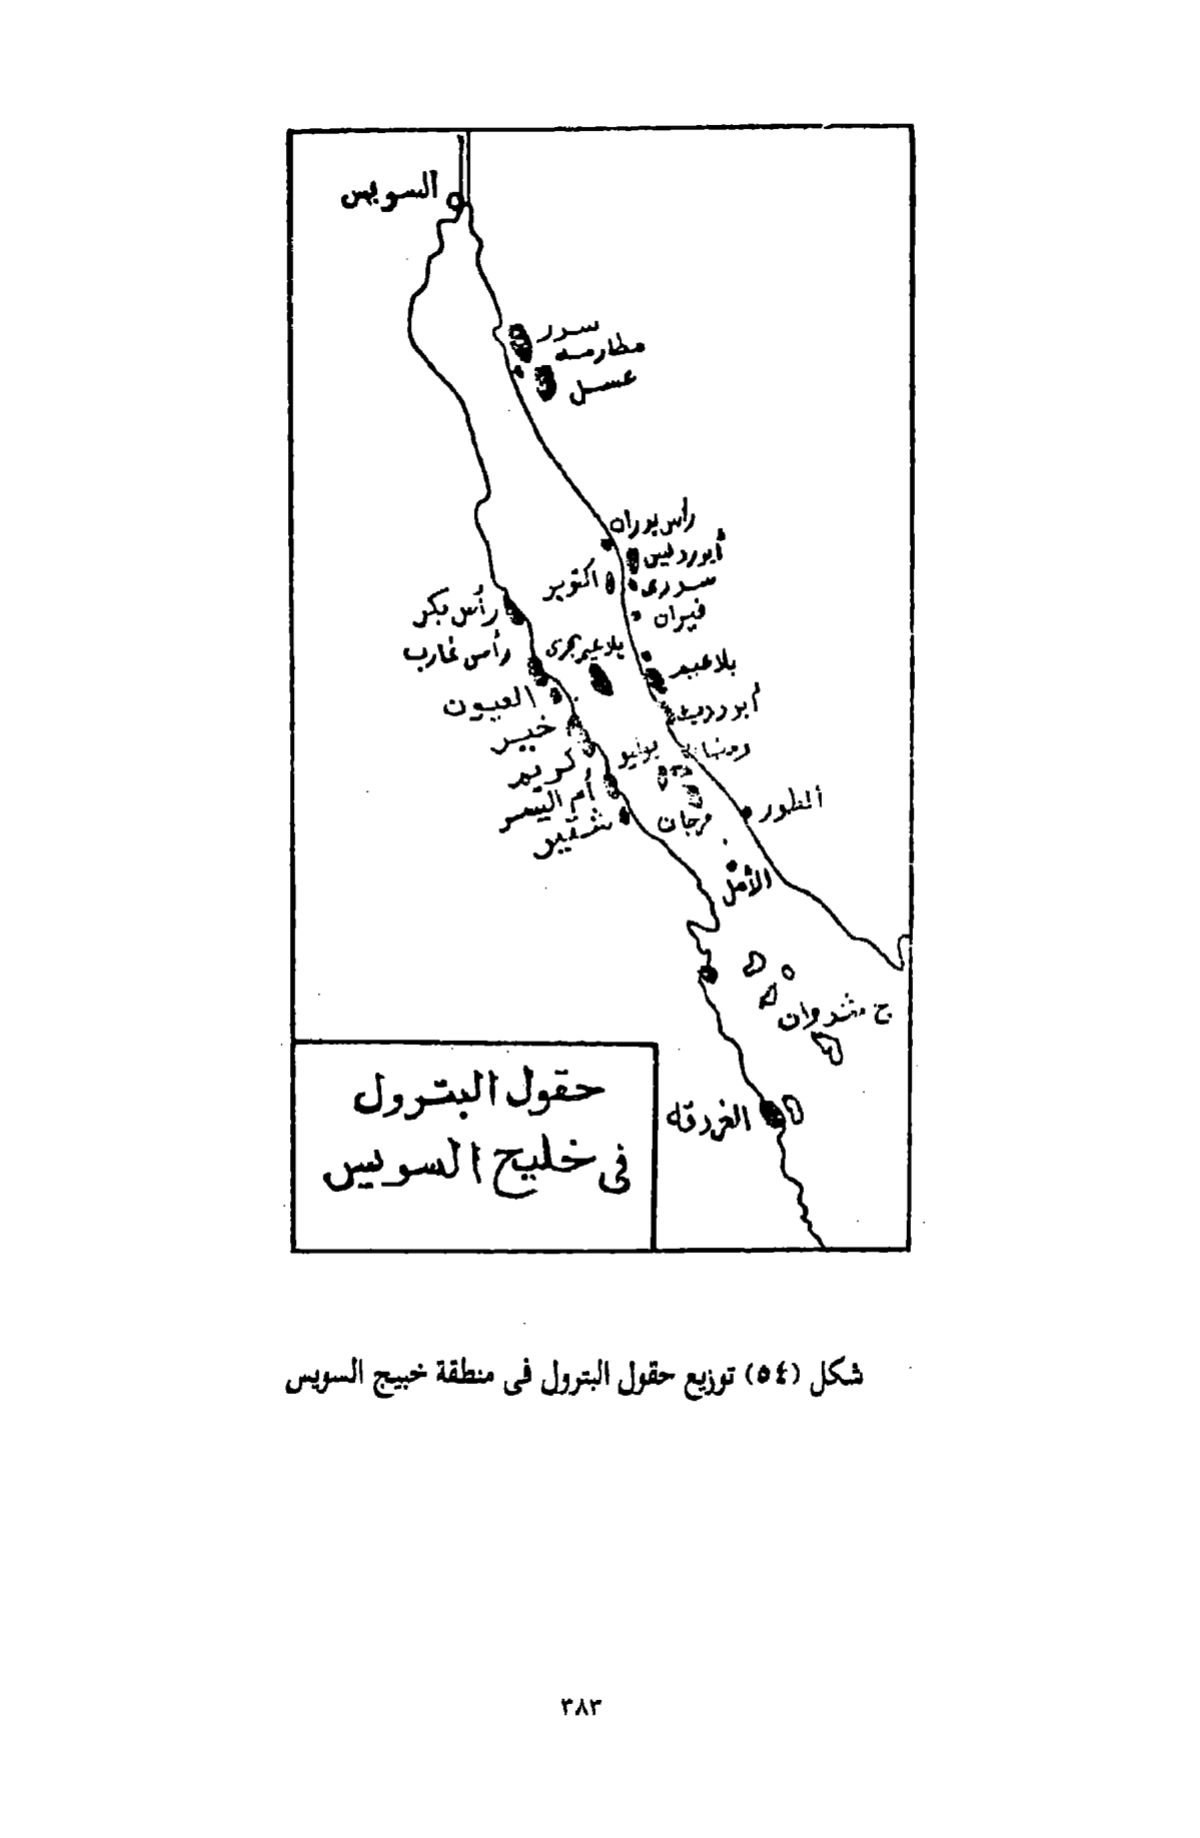 السويس
سدر
مطارمه
عسل
رأس بدران
أبورديس
سدرى
فيران
اكتوبر
رأس بكر
رأس غارب
بلاعيم بحرى
بلاعيم
العيون
خير
كريم
أم اليسر
شقير
يوليو
مرجان
الطور
الأمل
ج شدوان
الغردقه
حقول البترول
فى خليج السويس
شكل (٥٤) توزيع حقول البترول فى منطقة خبيج السويس
٣٨٣